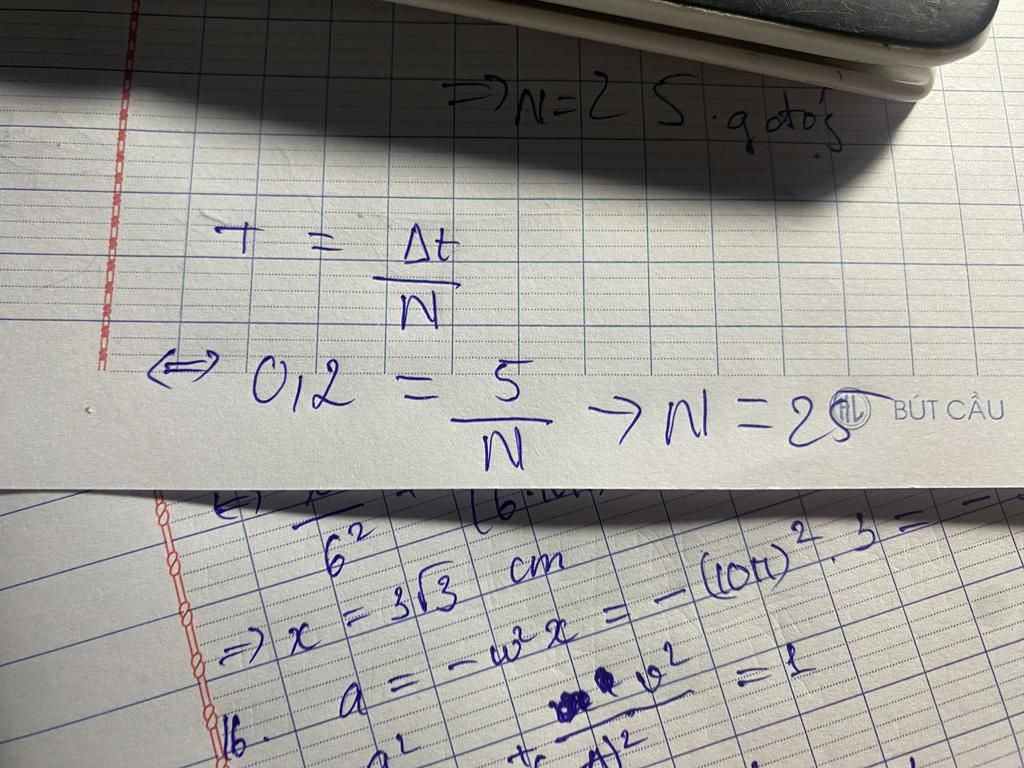 ⇒ N = 25.
T = Δt / N
⇔ 0,2 = 5 / N → N = 25
BÚT CẦU
6²
⇒ x = 3√3 cm
a = -ω²x = -(10π)². 3 = -
16.
v² = 1